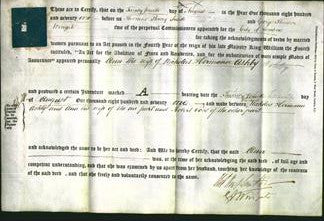 These are to Certify, that on the Twenty fourth day of August in the Year One thousand eight hundred
and seventy before us Thomas Henry Smith and George Thomas
of two of the perpetual Commissioners appointed for the City of London
for taking the acknowledgments of deeds by married
women pursuant to an Act passed in the Fourth Year of the reign of his late Majesty King William the Fourth
intituled "An Act for the Abolition of Fines and Recoveries, and for the substitution of more simple Modes of
Assurance" appeared personally Ann the wife of Nicholas Herrmann Ashby
and produced a certain Indenture marked A bearing date the day
of August One thousand eight hundred and seventy and made between Nicholas Herrmann
Ashby and Ann his wife of the one part and of the other part
and acknowledged the same to be her act and deed: And We do hereby Certify, that the said Ann
was, at the time of her acknowledging the said deed, of full age and
competent understanding, and that she was examined by us apart from her husband, touching her knowledge of the contents
of the said deed, and that she freely and voluntarily consented to the same.